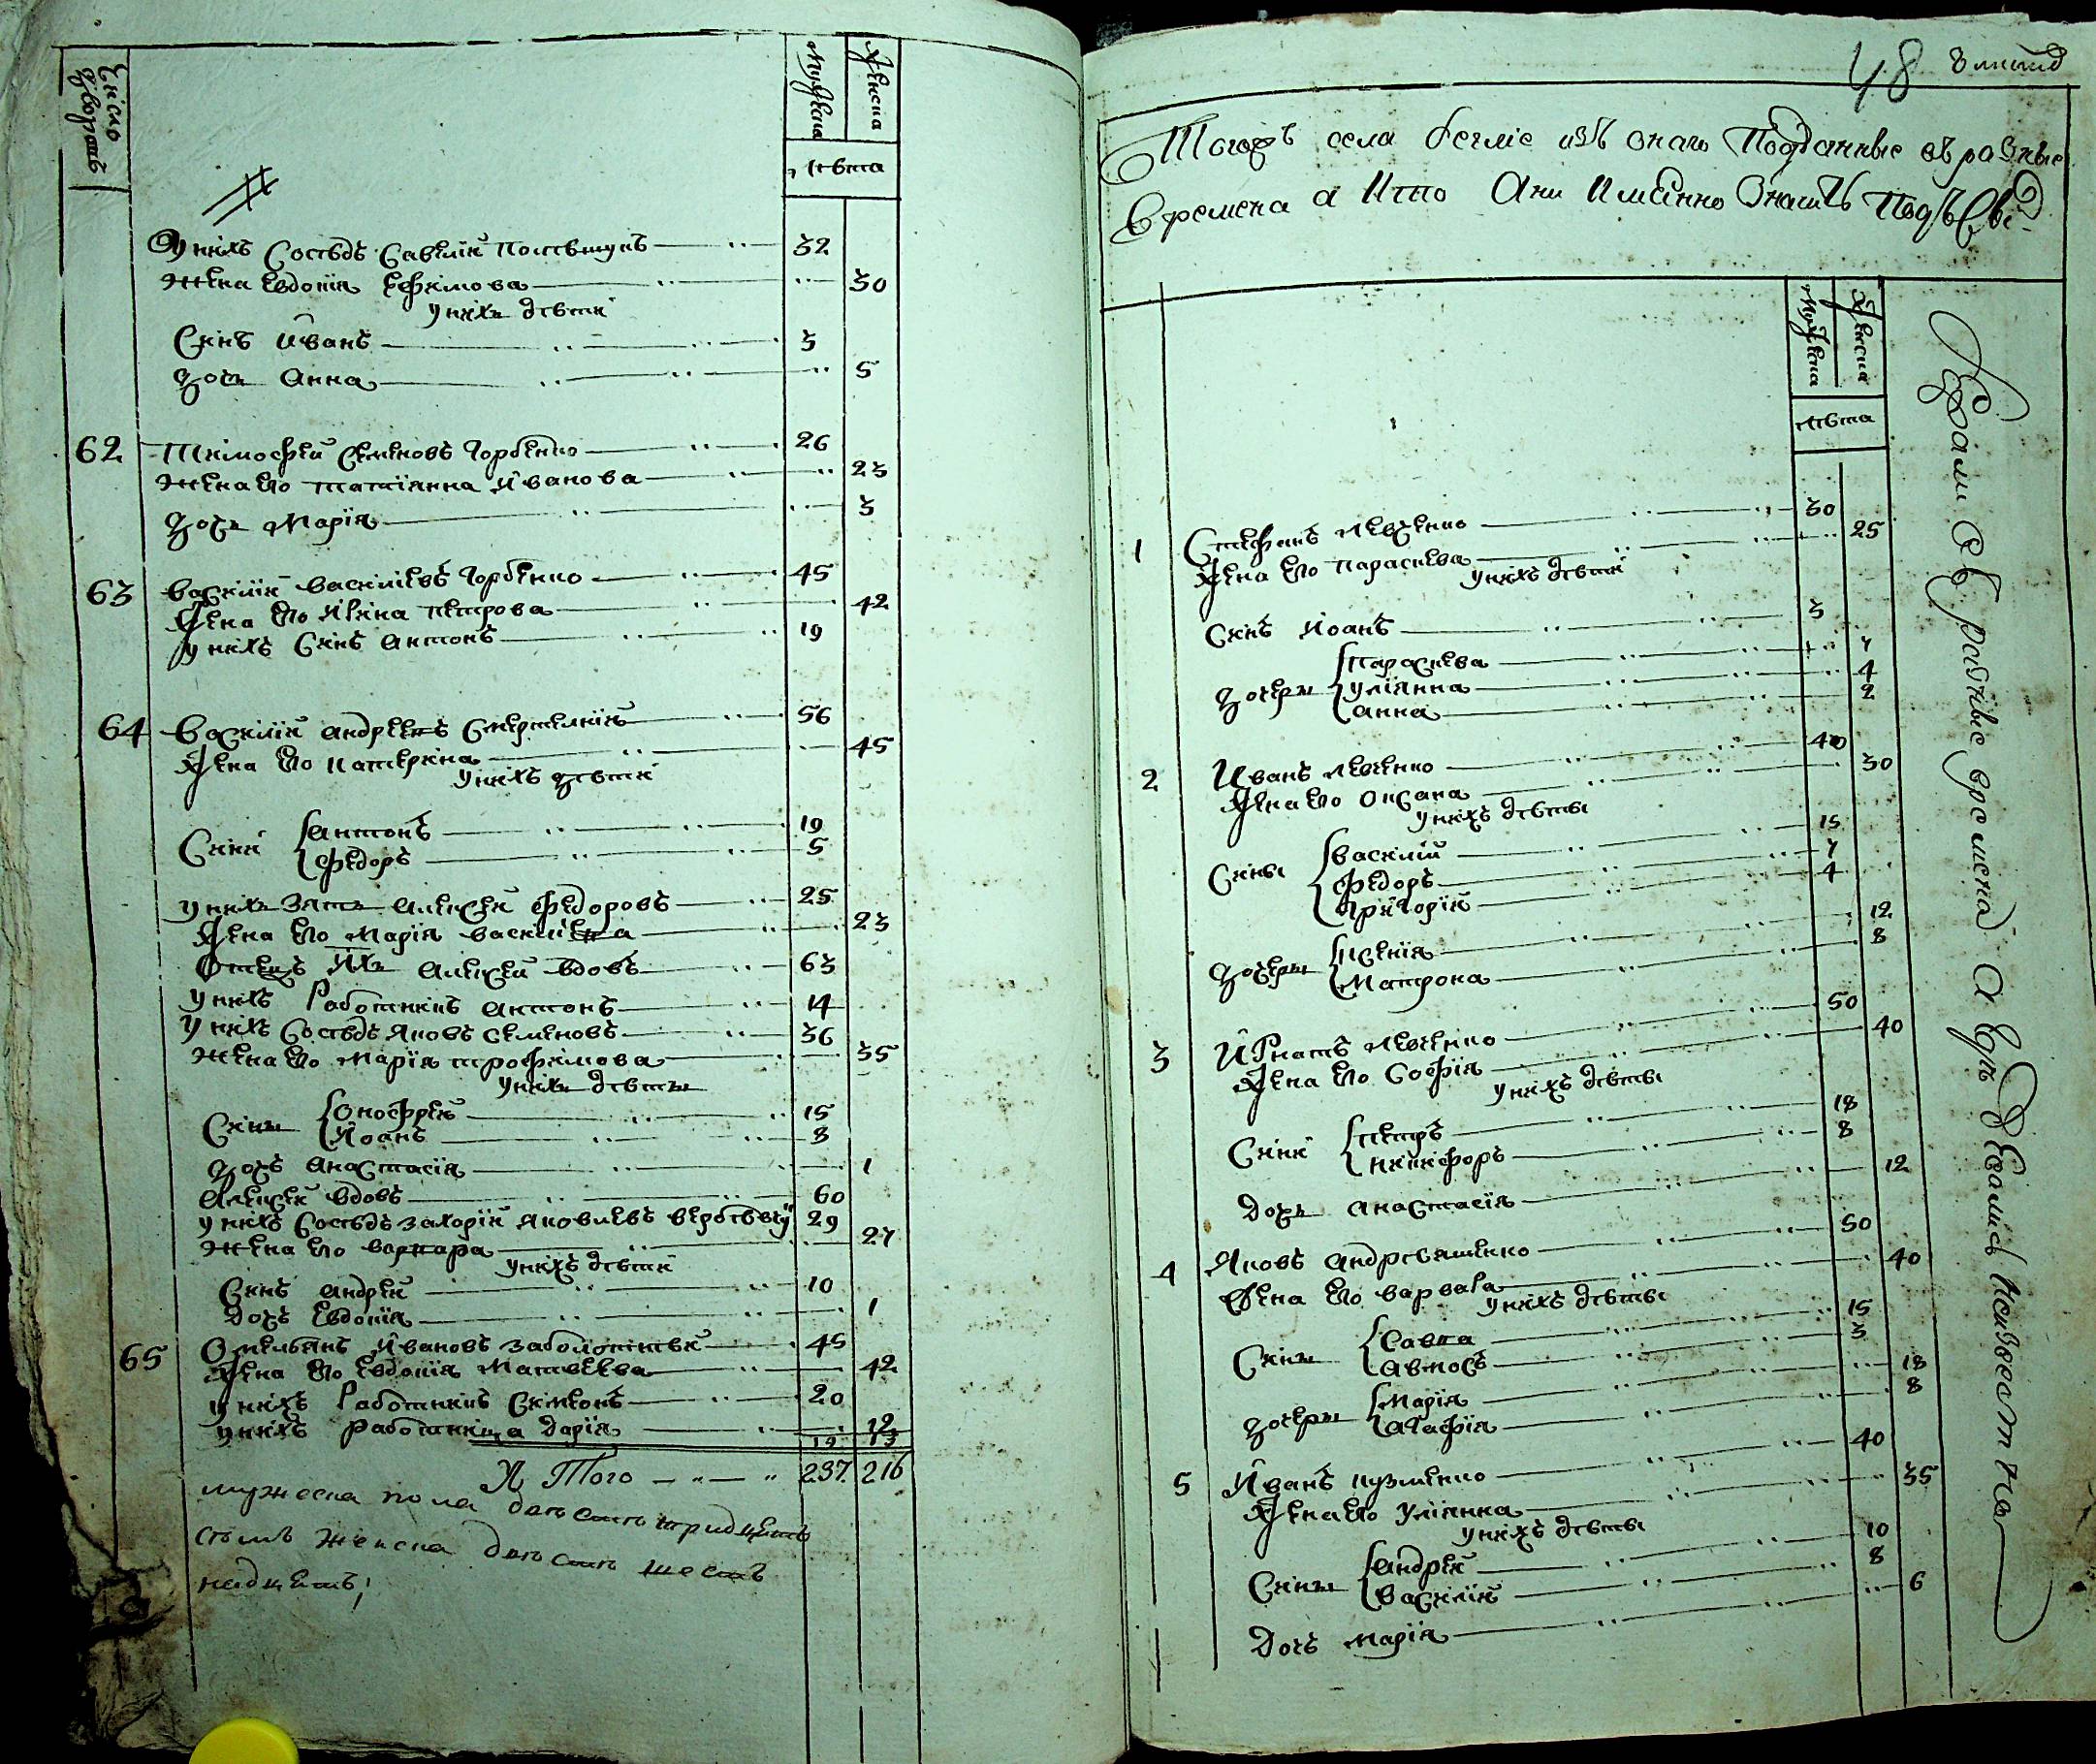 Число дворовъ
Мужеска
Женска
лѣта
У нихъ Сосѣдъ Савелїй 32
жена Евдокїя Ефимова 30
У нихъ дѣти
Синъ Иванъ 3
дочь Анна 5
62 Тимофей Семеновъ Горбенко 26
жена его татїанна Иванова 23
дочь Марїя 3
63 Василїй Василїевъ Горбенко 45
жена его Ирина петрова 42
У нихъ Синъ Антонъ 19
64 Василїй Андреевъ Смертелнїй 56
жена его катерина 45
У нихъ дѣти
Сини Антонъ 19
Федоръ 5
У нихъ зять Алексей Федоровъ 25
жена его Марїя Василїева 23
Отецъ Ихъ Алексей вдовъ 63
У нихъ Работникъ Антонъ 14
У нихъ Сосѣдъ Яковъ Семеновъ 36
жена его Марїя трофимова 35
У нихъ дѣты
Сины Онофрей 15
Иоанъ 8
дочъ Анастасїя 1
Алексей вдовъ 60
У нихъ Сосѣдъ Захорїй Яковлевъ 29
жена его варвара 27
У нихъ дѣти
Синъ Андрей 10
Дочъ Евдокїя 1
65 Омельянъ Ивановъ Заболотнїй 45
жена его Евдокїя Матвѣева 42
У нихъ Работникъ Симеонъ 20
У нихъ работница Дарїя 12
19 13
И Того 237 216
мужеска пола двѣстѣ тридцять
сѣмъ женска двѣстѣ шесть
надцять
48
Тогожъ села бегліе изъ онаго Подданные въ разные
времена а Кто Они Имянно Значитъ Подъ Симъ
Мужеска
Женска
лѣта
1 Стефанъ Левченко 30
жена его параскева 25
У нихъ дѣти
Синъ Иоанъ 3
дочеры Параскева 7
Улїянна 4
Анна 2
2 Иванъ Левченко 40
жена его Оксана 30
У нихъ дѣты
Сины Василїй 15
Федоръ 7
Григорїй 4
дочеры Ксенїя 12
Матрона 8
3 Игнатъ Левченко 50
жена его Софїя 40
У нихъ дѣты
Сини Петръ 18
Никифоръ 8
Дочь Анастасїя 12
4 Яковъ Андрѣяшенко 50
Жена его варвара 40
У нихъ дѣты
Сины Савка 15
Автосъ 3
дочеры Марїя 18
Агафїя 8
5 Иванъ кузменко 40
жена его Улїянна 35
У нихъ дѣты
Сины Андрей 10
Василїй 8
Дочъ Марїя 6
Бежали Въ разніе времена а Где Делись Неизвестно